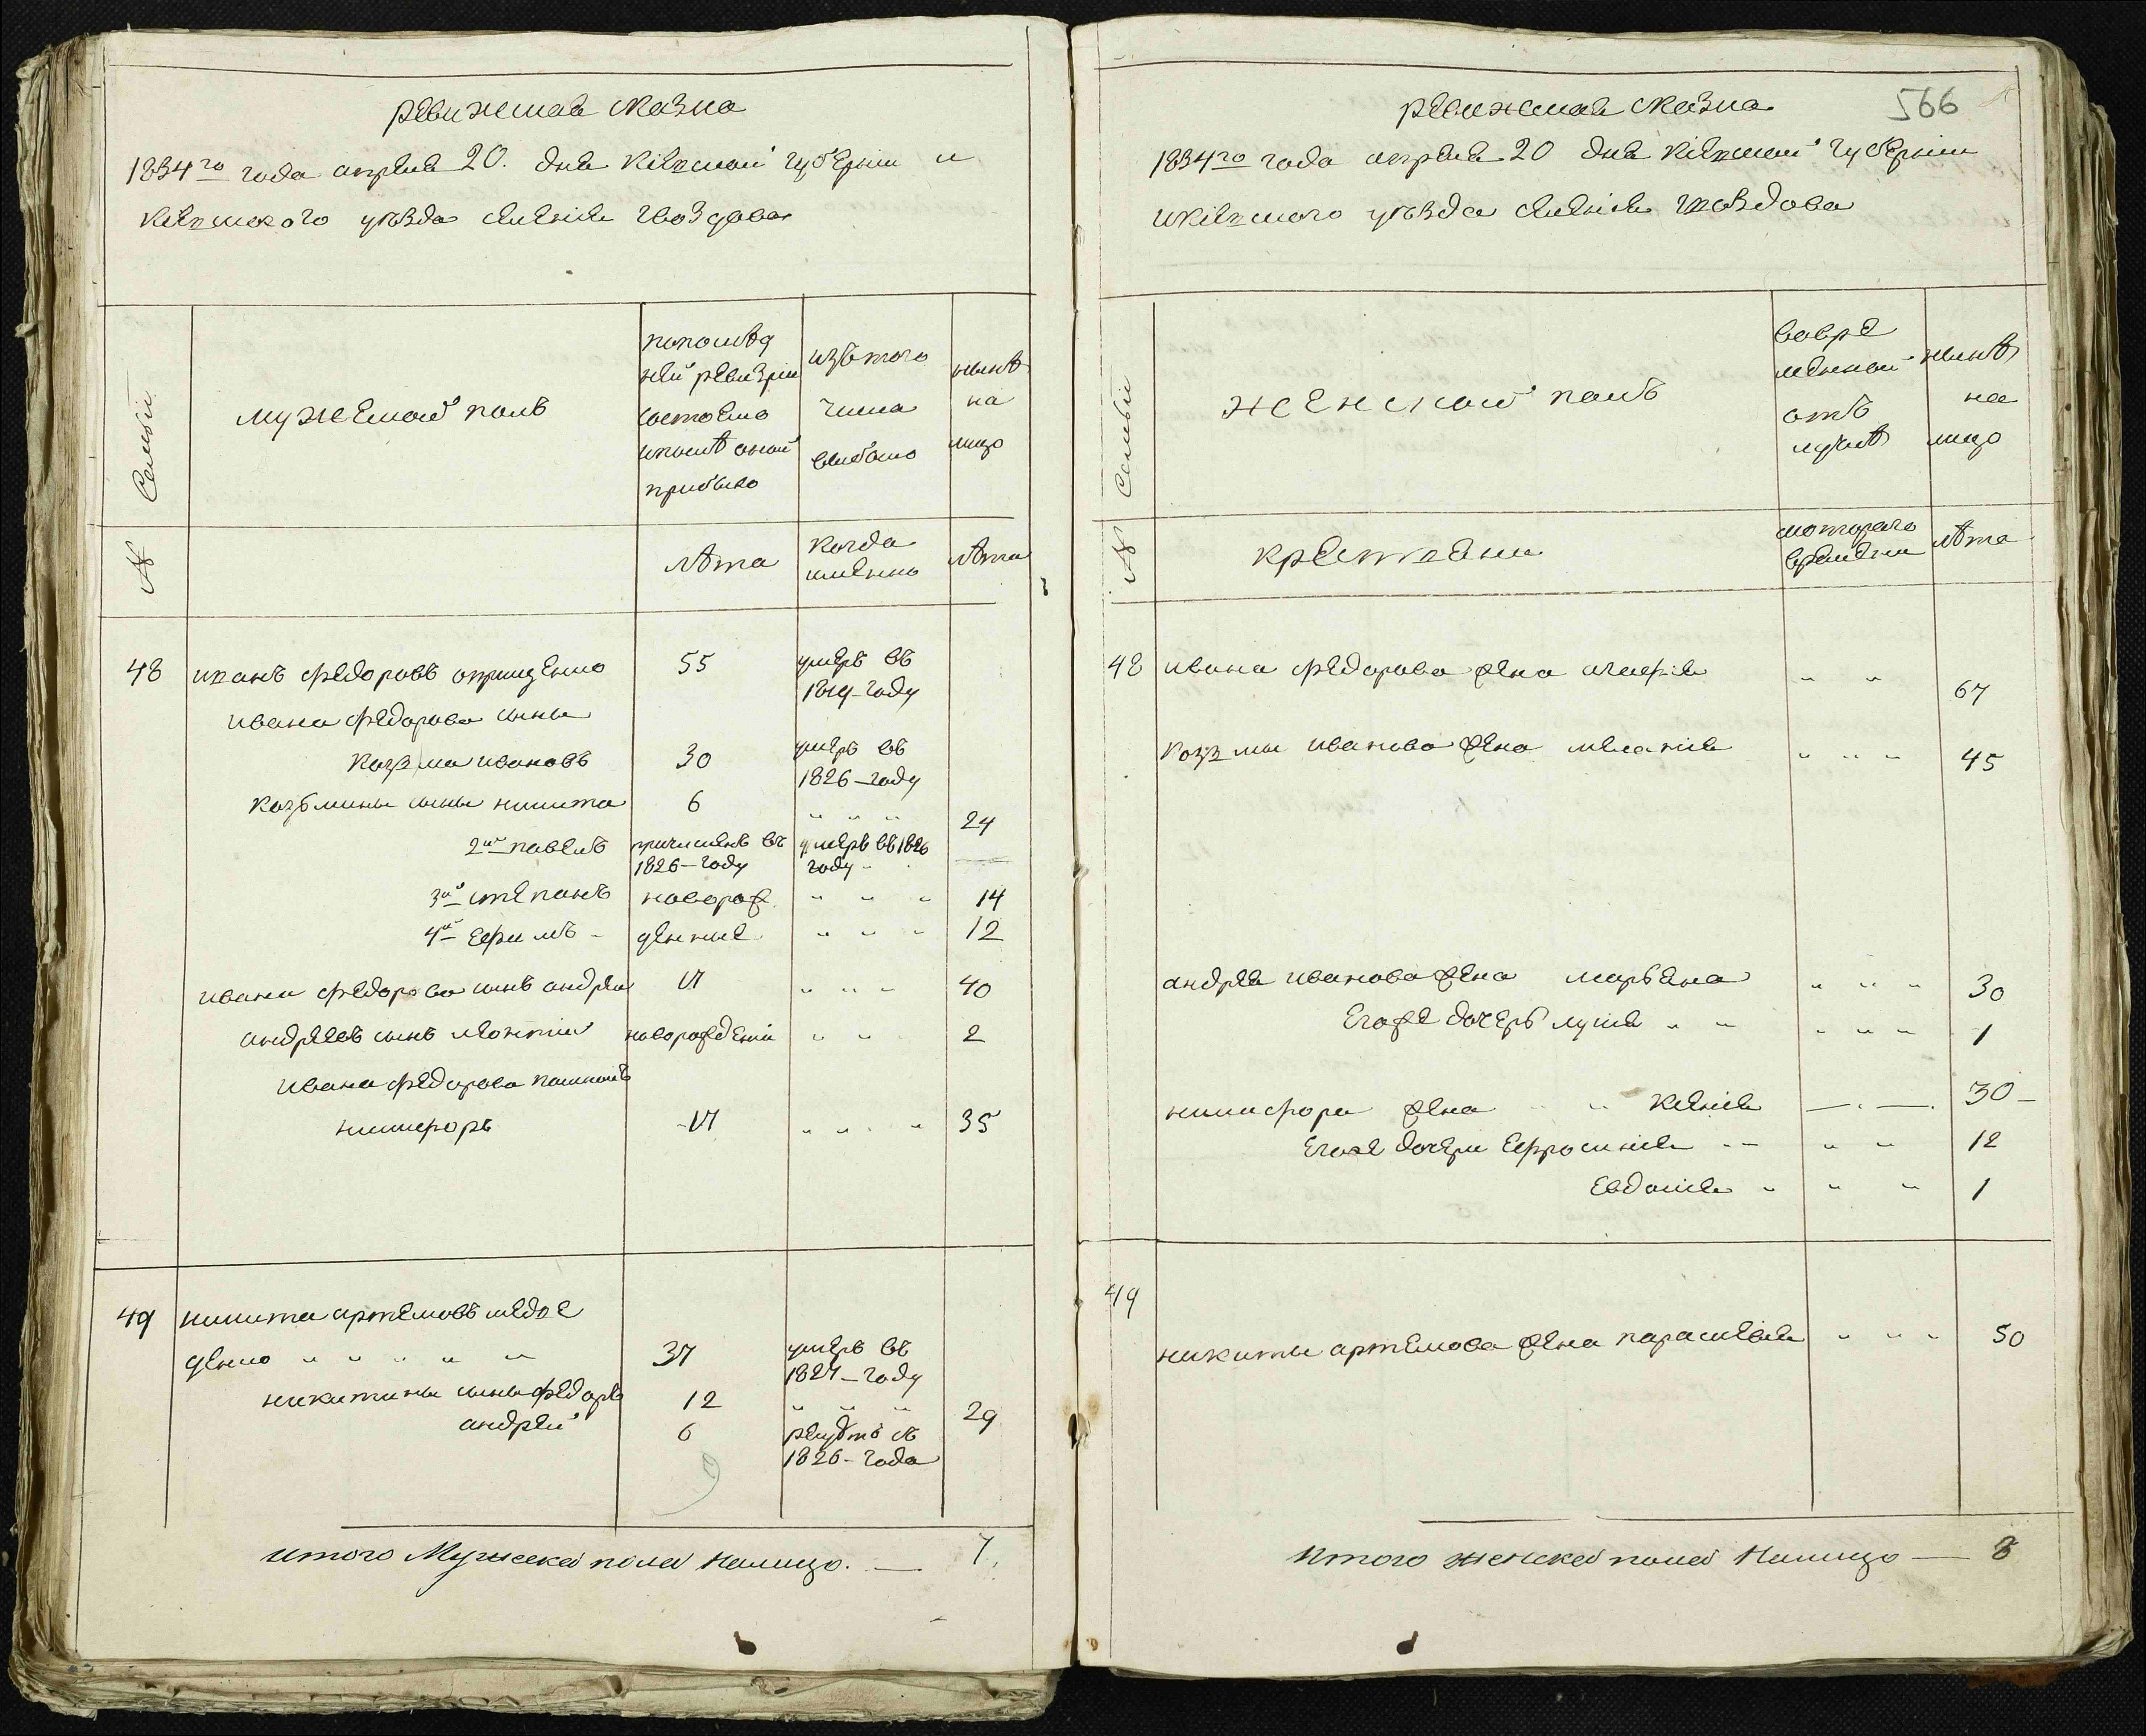 ревижская сказка
1834го года апреля 20. дня Кіевской губерніи и
Кіевского уезда селенія Гвоздова
№ Семьи
мужеской полъ
попослед
ней ревизіи
состояло
ипосле оной
прибыло
изътого
числа
выбыло
ныне
на
лицо
лета
когда
имянно
лета
48 иванъ Федоровъ онищенко 55 умеръ въ
1819-году
ивана Федорова сыны
Козьма ивановъ 30 умеръ въ
1826-году
Козьмины сыны никита 6 " " " 24
2й павелъ причисленъ въ умеръ въ 1826
1826-году году -
3й степанъ новорож " " " 14
4й Ефимъ - денные " " " 12
ивана Федорова сынъ андрей 17 " " " 40
андреевъ сынъ леонтій новорожденій " " 2
ивана Федорова
никифоръ 17 " " " " 35
49 никита артемовъ
денко " " " " " 37 умеръ въ
1827-году
никитины сыны Федоръ 12 " " " 29
андрей 6 рекрутъ съ
1826-года
итого Мужеска пола налицо. — 7.
566
ревижская сказка
1834го года апреля 20 дня Кіевской губерніи
иКіевского уезда селенія Гвоздова
№ Семьи
женской полъ
вовре
менной
отъ
лучке
ныне
на
лицо
крестяни
которого
времени
лета
48 ивана Федорова жена агафія " " 67
Козьмы иванова жена меланія " " " 45
андрея иванова жена марьяна " " " 30
Егоже дочерь лукія " " " " " 1
никифора жена " " Ксенія — . — . 30 -
Егоже дочери Ефросинія - - " " 12
Евдокія " " " 1
49
никиты артемова жена параскевія " " " 50
Итого женска пола Налицо — 8